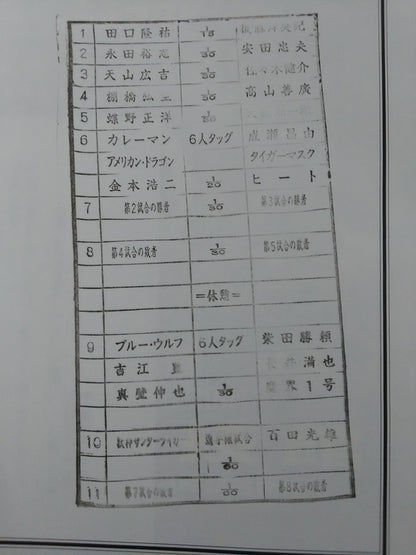 1 田口隆祐 1/15
2 永田裕志 1/30 安田忠夫
3 天山広吉 1/30 佐々木健介
4 棚橋弘至 1/30 高山善廣
5 蝶野正洋 1/30
6 カレーマン 6人タッグ 成瀬昌由
アメリカン・ドラゴン タイガーマスク
金本浩二 1/20 ヒート
7 第2試合の勝者 1/30 第3試合の勝者
8 第4試合の敗者 1/30 第5試合の敗者
=休憩=
9 ブルー・ウルフ 6人タッグ 柴田勝頼
吉江豊 長井満也
真壁伸也 1/30 魔界1号
10 獣神サンダーライガー 選手権試合 百田光雄
1/60
11 第7試合の敗者 1/60 第8試合の敗者